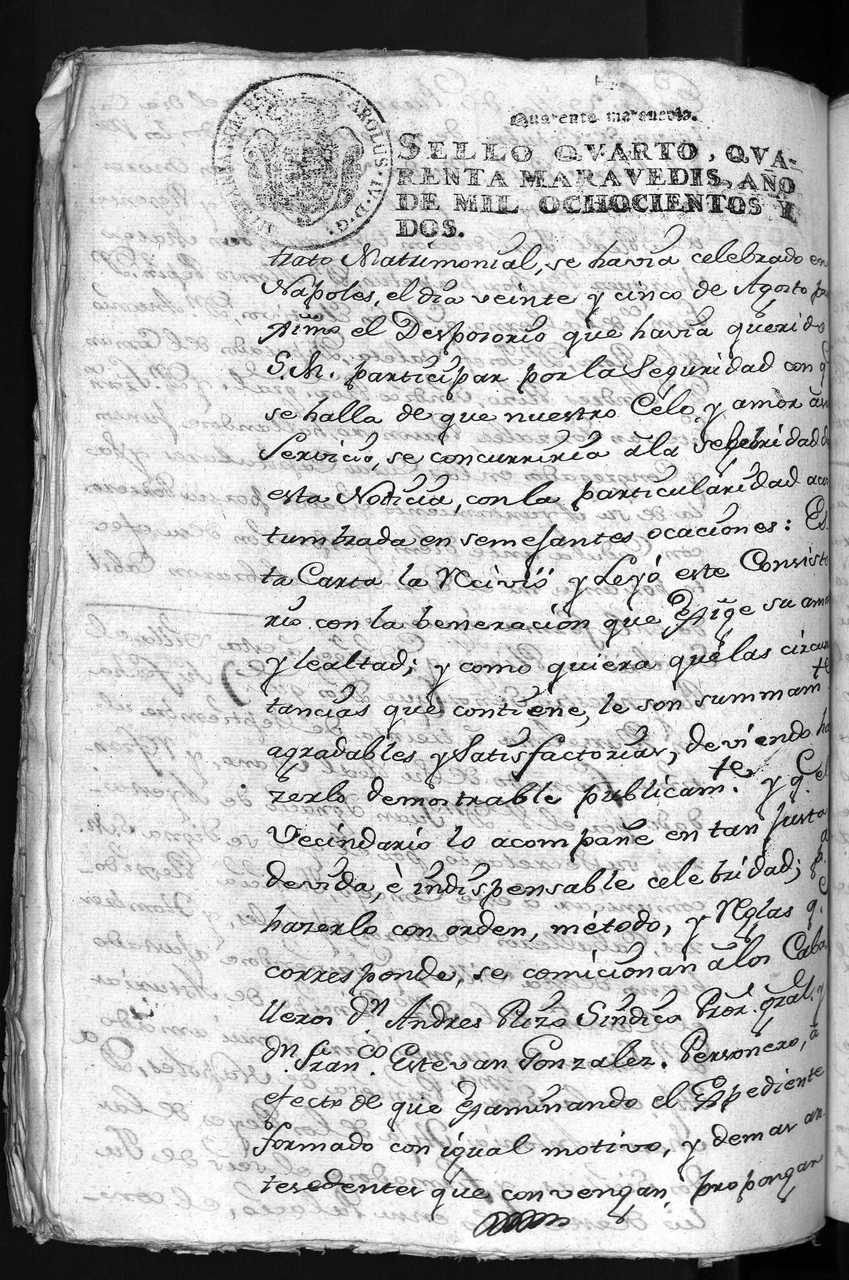 Quarenta maravedis.
SELLO QVARTO, QVA-
RENTA MARAVEDIS, AÑO
DE MIL OCHOCIENTOS Y
DOS.
CAROLUS. IV. D. G.
trato Matrimonial, se havia celebrado en
Napoles, el dia veinte y cinco de Agosto
el Desposorio que havia querido
S.M. participar por la Seguridad con q
se halla de que nuestro Célo, y amor
Servicio, se concurriria âla Selebridad d
esta Noticia, con la particularidad acos
tumbrada en semejantes ocaciones: Es
ta Carta la Rcivió y Leyó este Consisto
rio con la beneracion que Exîge su amo
y lealtad; y como quiera que las circun
tancias que contiene, le són summamte
agradables y Satisfactorias, deviendo ha
zerlo demostrable publicamte. y q. el
Vecindario lo acompañe en tan justa
devida, è indispensable celebridad; pa
hazerlo con orden, método, y Rglas q.
corresponde, se comicionan âlos Caba
lleros Dn. Andres Sindico Prór. gral. y
Dn. Franco. Estevan Gonzalez. Personero, â
efecto de que Examinando el Expediente
formado con igual motivo, y demas an
tesedentes que convengan, propongan